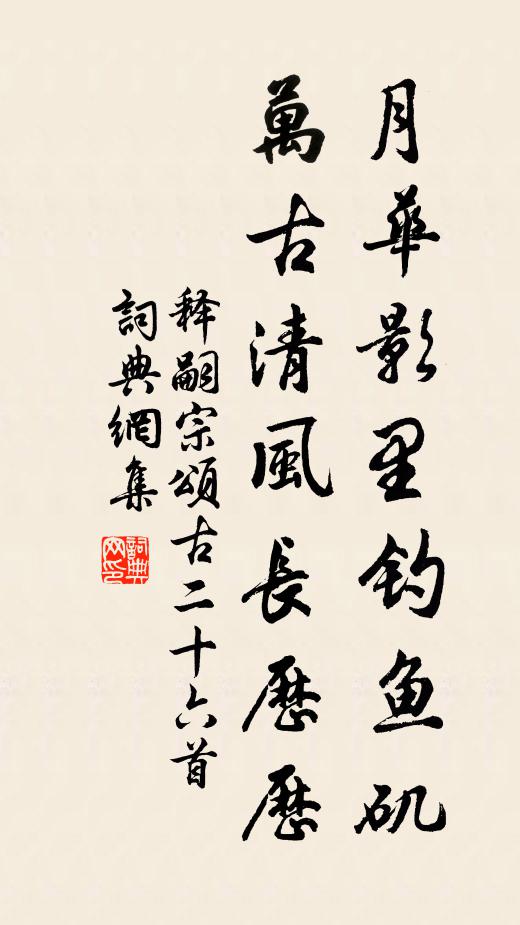 月華影里钓鱼矶
萬古清風長歷歷
释嗣宗頌古二十六首
詞典網集
詞典网印